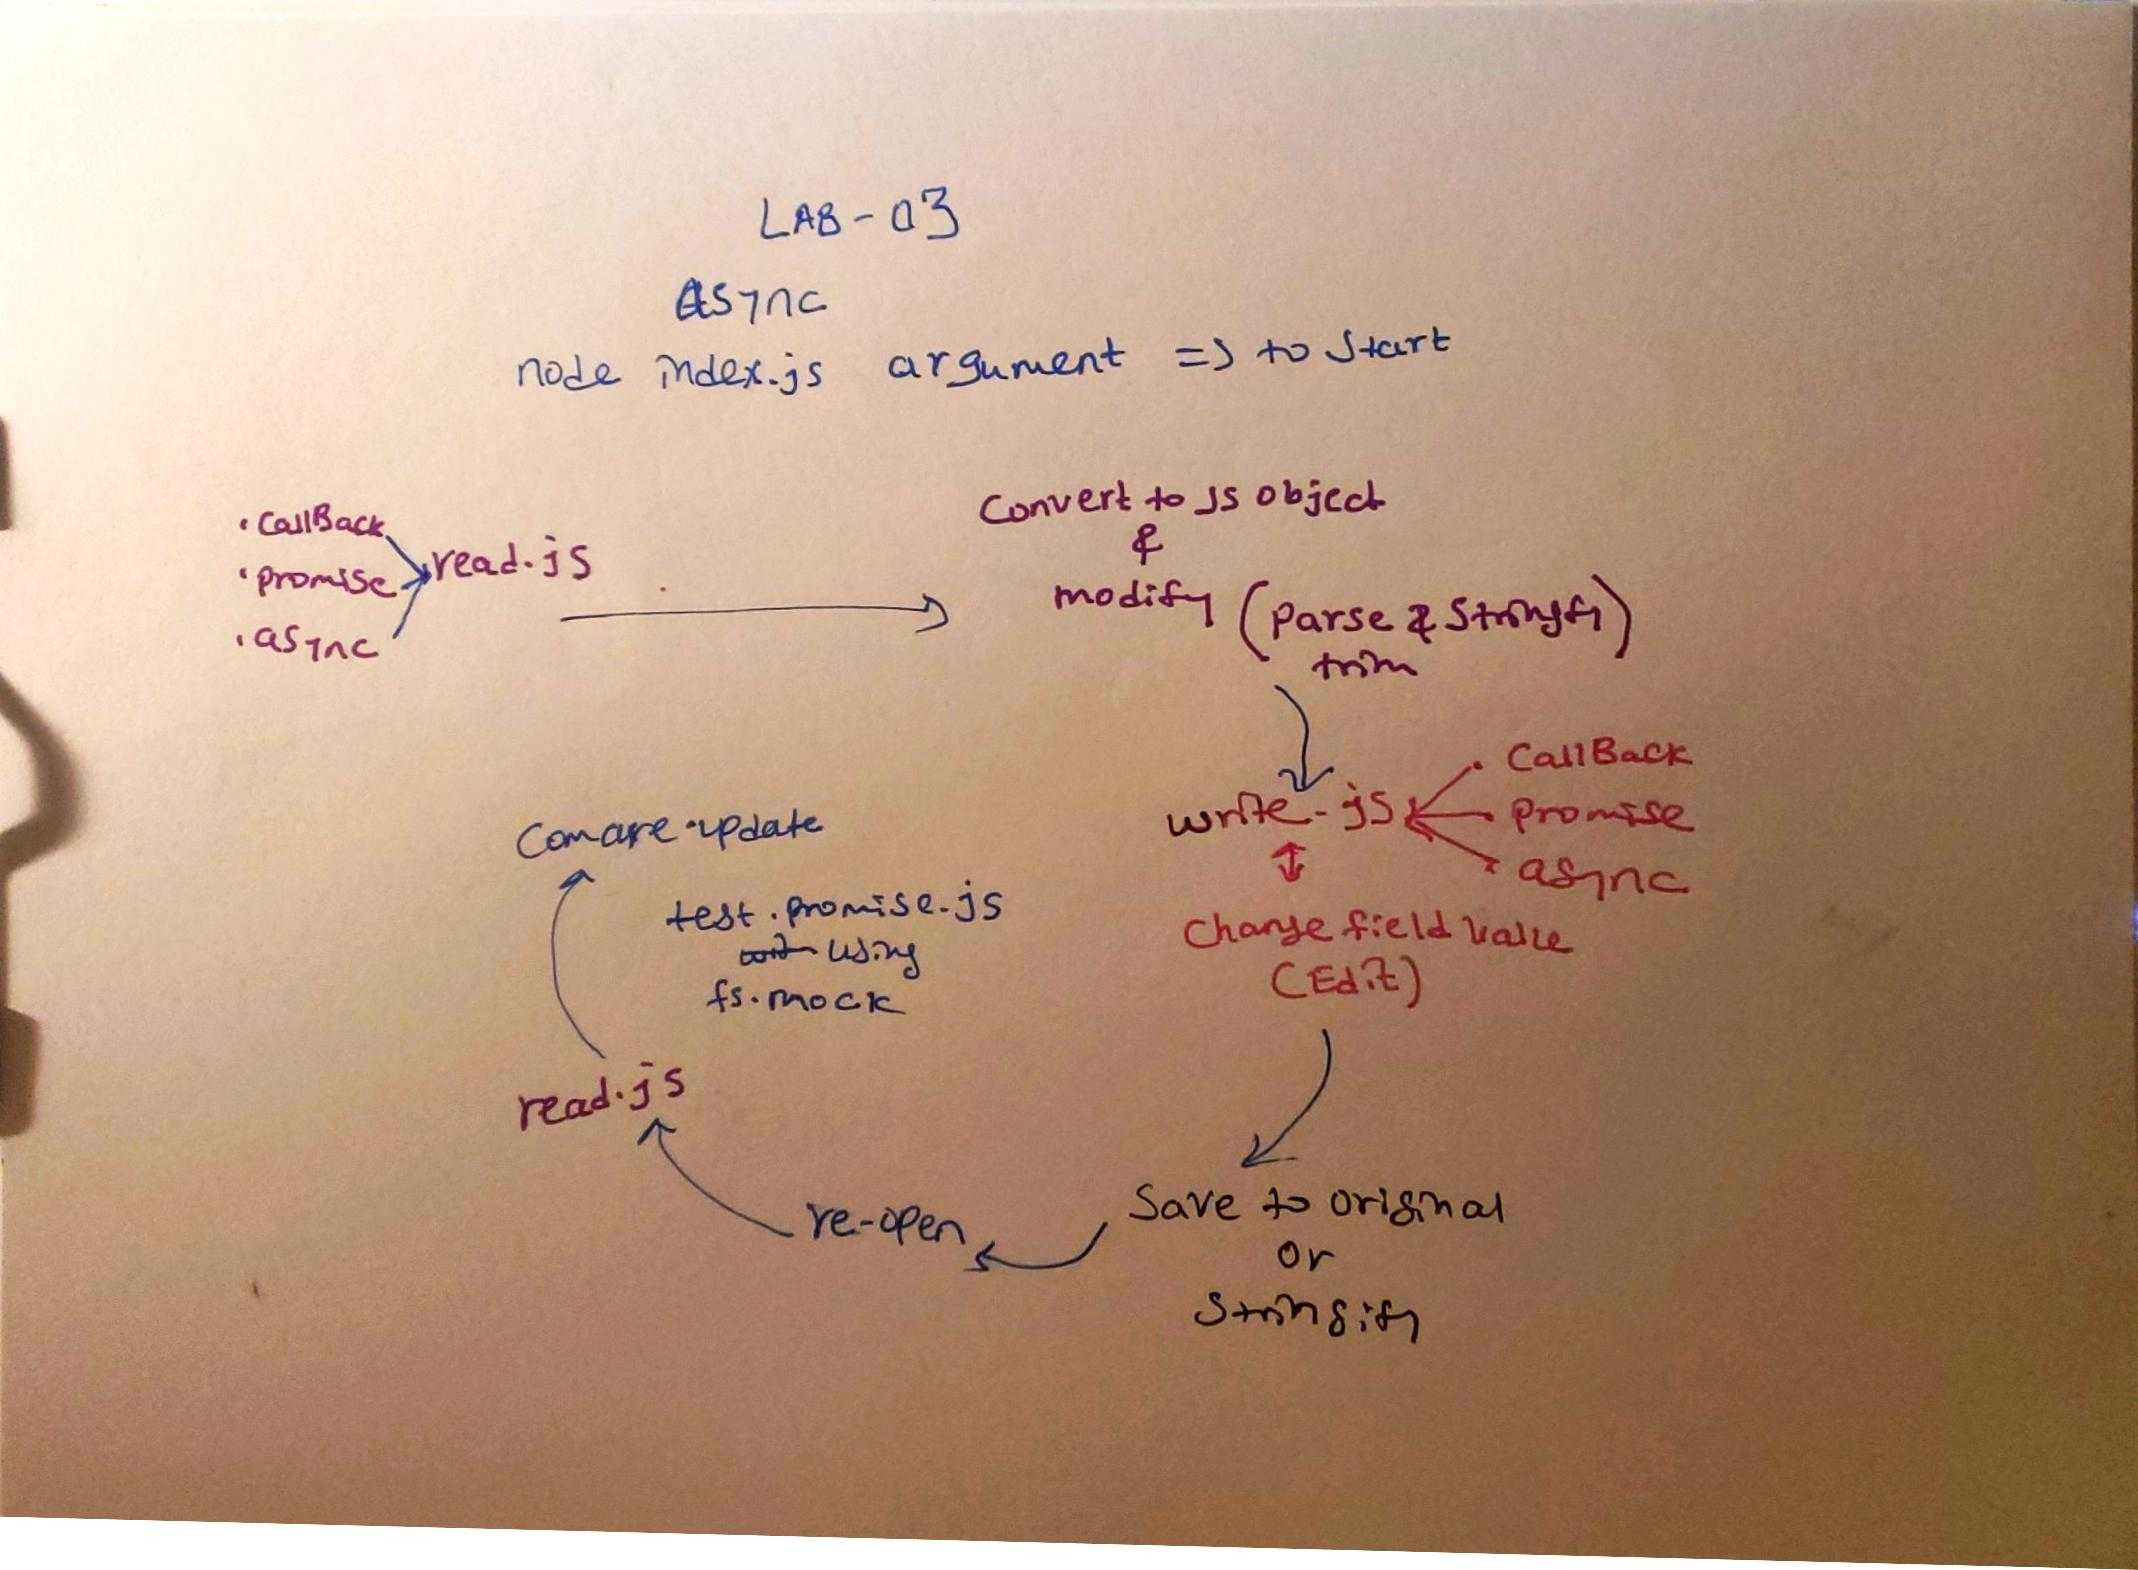 LAB-03
async
node index.js argument => to start
• CallBack
• promise
• async
read.js
Convert to JS object
&
modify (Parse & Stringfy)
trim
write-js
• CallBack
• promise
• async
Change field value
(Edit)
Save to original
or
Stringify
re-open
read.js
Comapre update
test.promise.js
using
fs.mock